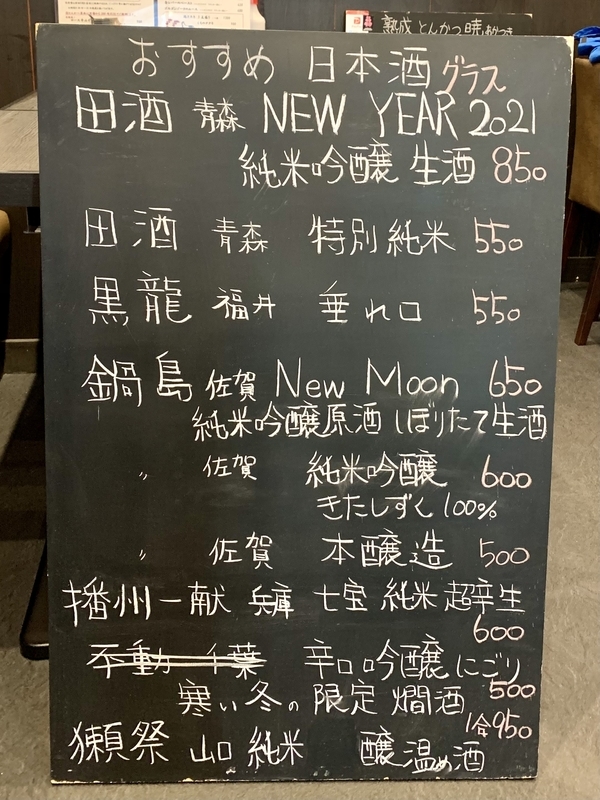 熟成 とんかつ 暁 あかつき
おすすめ 日本酒 グラス
田酒 青森 NEW YEAR 2021
純米吟醸 生酒 850
田酒 青森 特別純米 550
黒龍 福井 垂れ口 550
鍋島 佐賀 New Moon 650
純米吟醸原酒 しぼりたて生酒
〃 佐賀 純米吟醸 600
きたしずく 100%
〃 佐賀 本醸造 500
播州一献 兵庫 七宝 純米 超辛生
600
不動 千葉 辛口吟醸 にごり
500
寒い冬の限定 燗酒
1合950
獺祭 山口 純米 醸 温め酒